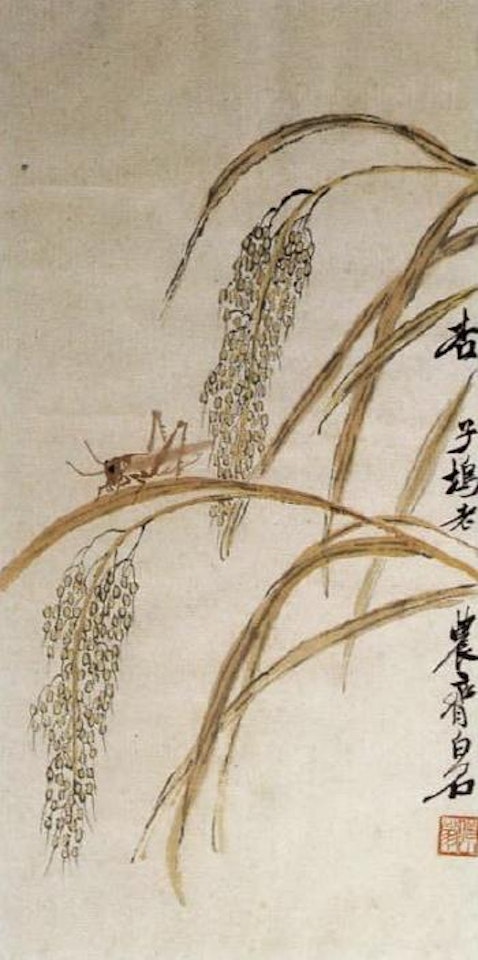 杏子塢老農齊白石